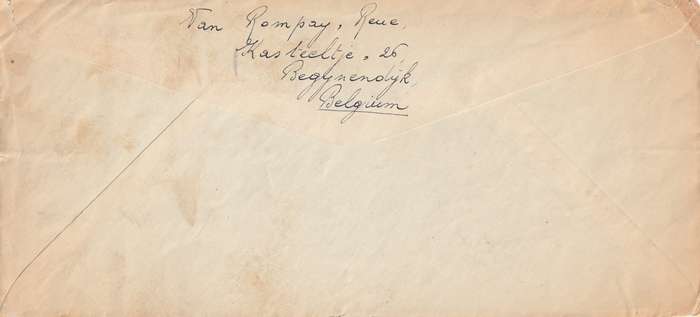 Van Rompay, Reue,
Kasteeltje, 26,
Begijnendijk,
Belgium